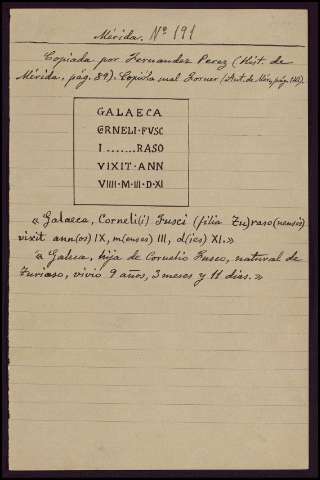 Mérida. Nº 191
Copiada por Fernandez Perez (Hist. de
Mérida, pág. 89). Copióla mal Forner (Ant. de Mér., pág. 110).
GALAECA
CRNELI·FVSC
I.......RASO
VIXIT·ANN
VIIII·M·III·D·XI
« Galaeca, Corneli(i) Fusci (filia Tu)raso(nensis)
vixit ann(os) IX, m(enses) III, d(ies) XI.»
« Galeca, hija de Cornelio Fusco, natural de
Turiaso, vivió 9 años, 3 meses y 11 dias. »